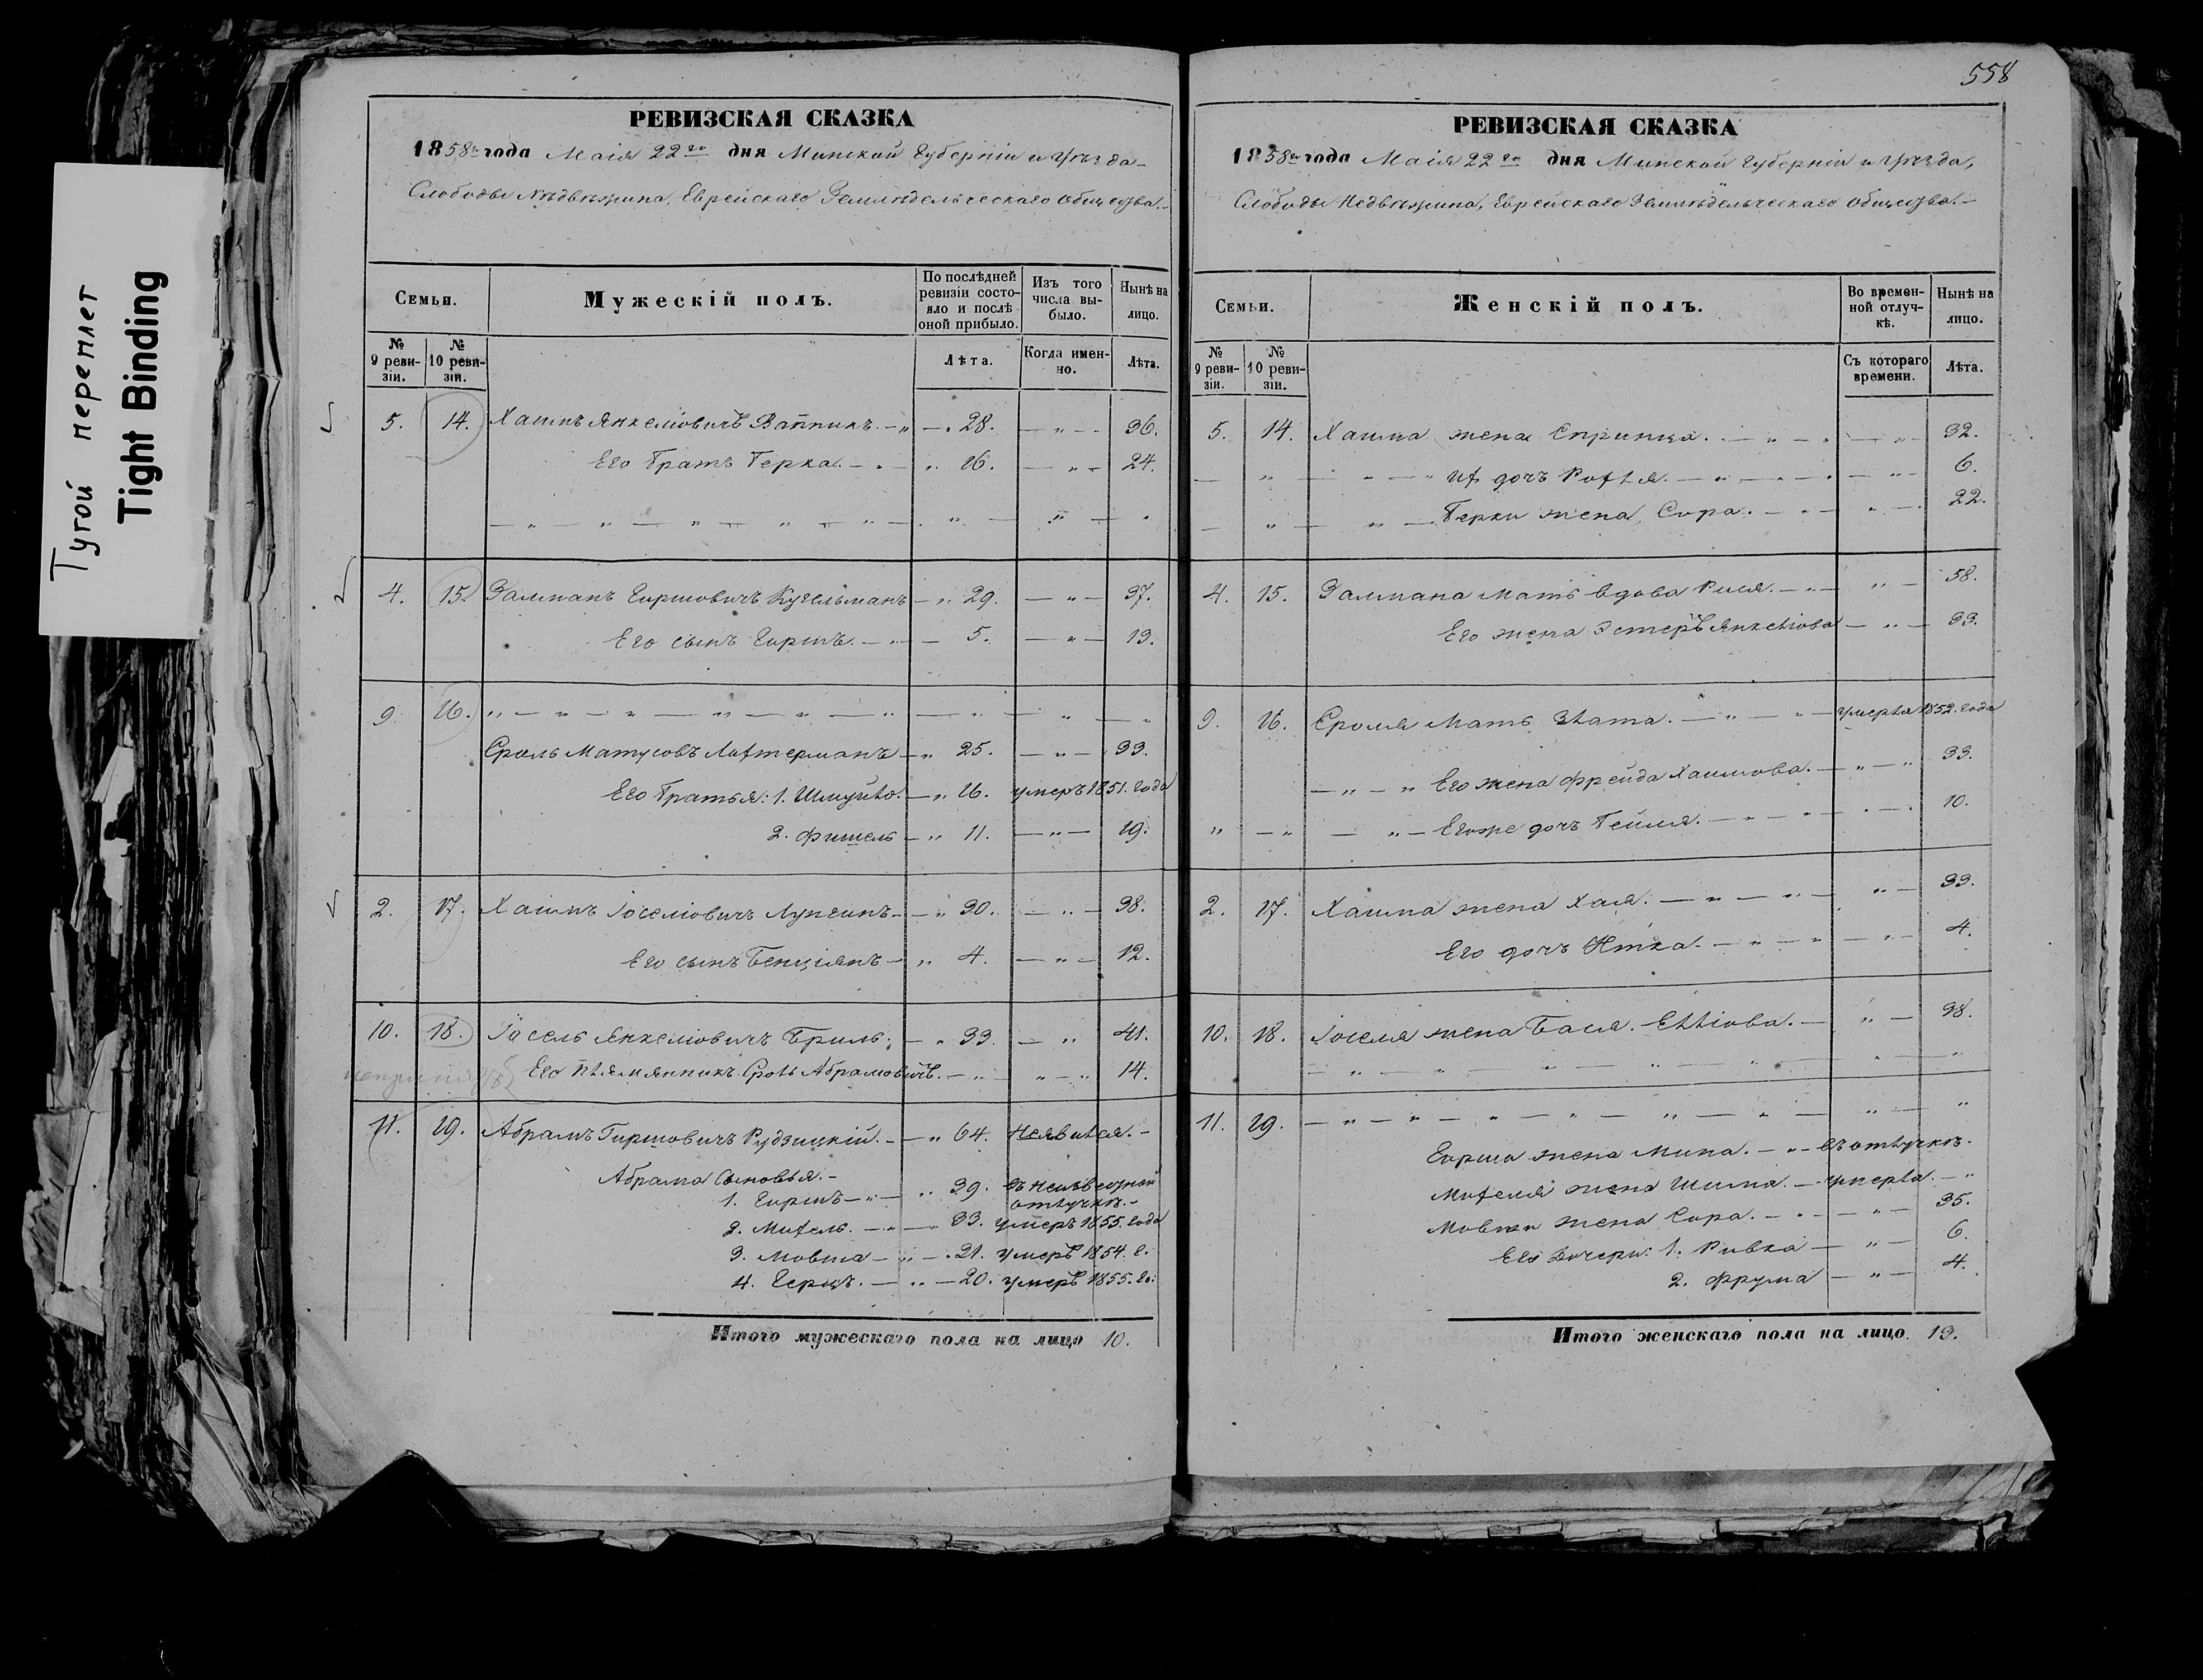 558
Тугой переплет
Tight Binding
РЕВИЗСКАЯ СКАЗКА
1858го года Маія 22го дня Минской Губерніи и Уѣзда
Слободы Нѣдвѣжина, Еврейскаго Земледѣльческаго общества.
Семьи.
Мужескій полъ.
По послѣдней ревизіи состояло и послѣ оной прибыло.
Изъ того числа выбыло.
Нынѣ на лицо.
№ 9 ревизіи.
№ 10 ревизіи.
Лѣта.
Когда именно.
Лѣта.
5. 14. Хаимъ Янкеліовичъ Вапникъ. — " — 28. — " — 36.
Его братъ Берка. — " 16. — " — 24.
4. 15. Залманъ Гиршовичъ Кугельманъ — " 29. — " — 37.
Его сынъ Гиршъ. — " — 5. — " — 13.
9. 16.
Сроль Матусовъ Лифтерманъ — " 25. — " — 33.
Его братья: 1. Шмуйло. — " 16. умеръ 1851. года
2. Фишель — " 11. — " — 19.
2. 17. Хаимъ Іоселіовичъ Лупсинъ — " 30. — " — 38.
Его сынъ Бенціянъ — " 4. — " — 12.
10. 18. Іосель Янкеліовичъ Бриль. — " 33. — " 41.
Его племянникъ Сроль Абрамовичъ. — " — " — " 14.
11. 19. Абрамъ Гиршовичъ Рудзицкій. — " 64. Неявился. —
Абрама сыновья. —
1. Гиршъ — " — " 39. въ неизвестной отлучкѣ. —
2. — " — " 33. умеръ 1855. года
3. Мовша — " — " 21. умеръ 1854. г.
4. Герцъ. — " — 20. умеръ 1855. го:
Итого мужескаго пола на лицо 10.
РЕВИЗСКАЯ СКАЗКА
1858го года Маія 22го дня Минской Губерніи и Уѣзда,
Слободы Недвѣжина, Еврейскаго Земледѣльческаго общества. —
Семьи.
Женскій полъ.
Во временной отлучкѣ.
Нынѣ на лицо.
№ 9 ревизіи.
№ 10 ревизіи.
Съ котораго времени.
Лѣта.
5. 14. Хаима жена Спринца. — " — " — 32.
дочъ — " — 6.
Берки жена Сора. — " — 22.
4. 15. Залмана мать вдова Рися. — " — " — 58.
Его жена Эстеръ Янкеліова — " — 33.
9. 16. Сроля мать Злата. — " — " — умерла 1852. года
Его жена Фрейда Хаимова. — " — " 33.
Егоже дочъ Бейля. — " — " 10.
2. 17. Хаима жена Хая: — " — " — " — 33.
Его дочъ Итка. — " — " — " — 4.
10. 18. Іоселя жена Бася. Елліова. — " — 38.
11. 19.
Гирша жена Мина. — " — въ отлучкѣ.
жена Шима. — умерла. — "
Мовши жена Сора. — " — " — 35.
Его дочери: 1. Ривка — " — 6.
2. Фрума — " — 4.
Итого женскаго пола на лицо. 13.